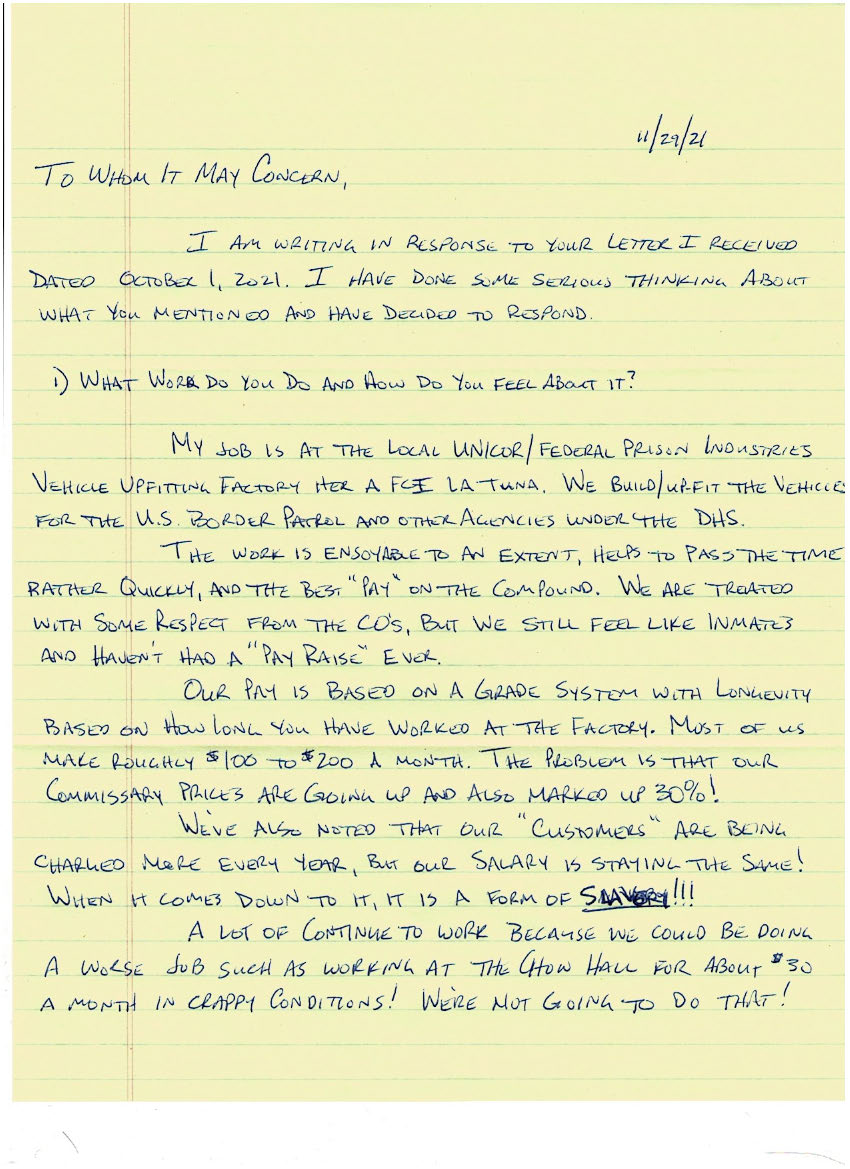 11/29/21
TO WHOM IT MAY CONCERN,
I AM WRITING IN RESPONSE TO YOUR LETTER I RECEIVED
DATED OCTOBER 1, 2021. I HAVE DONE SOME SERIOUS THINKING ABOUT
WHAT YOU MENTIONED AND HAVE DECIDED TO RESPOND.
1) WHAT WORK DO YOU DO AND HOW DO YOU FEEL ABOUT IT?
MY JOB IS AT THE LOCAL UNICOR/FEDERAL PRISON INDUSTRIES
VEHICLE UPFITTING FACTORY HER A FCI LA TUNA. WE BUILD/UP-FIT THE VEHICLES
FOR THE U.S. BORDER PATROL AND OTHER AGENCIES UNDER THE DHS.
THE WORK IS ENJOYABLE TO AN EXTENT, HELPS TO PASS THE TIME
RATHER QUICKLY, AND THE BEST "PAY" ON THE COMPOUND. WE ARE TREATED
WITH SOME RESPECT FROM THE CO'S, BUT WE STILL FEEL LIKE INMATES
AND HAVEN'T HAD A "PAY RAISE" EVER.
OUR PAY IS BASED ON A GRADE SYSTEM WITH LONGEVITY
BASED ON HOW LONG YOU HAVE WORKED AT THE FACTORY. MOST OF US
MAKE ROUGHLY $100 TO $200 A MONTH. THE PROBLEM IS THAT OUR
COMMISSARY PRICES ARE GOING UP AND ALSO MARKED UP 30%!
WE'VE ALSO NOTED THAT OUR "CUSTOMERS" ARE BEING
CHARGED MORE EVERY YEAR, BUT OUR SALARY IS STAYING THE SAME!
WHEN IT COMES DOWN TO IT, IT IS A FORM OF SLAVERY!!!
A LOT OF CONTINUE TO WORK BECAUSE WE COULD BE DOING
A WORSE JOB SUCH AS WORKING AT THE CHOW HALL FOR ABOUT $30
A MONTH IN CRAPPY CONDITIONS! WE'RE NOT GOING TO DO THAT!